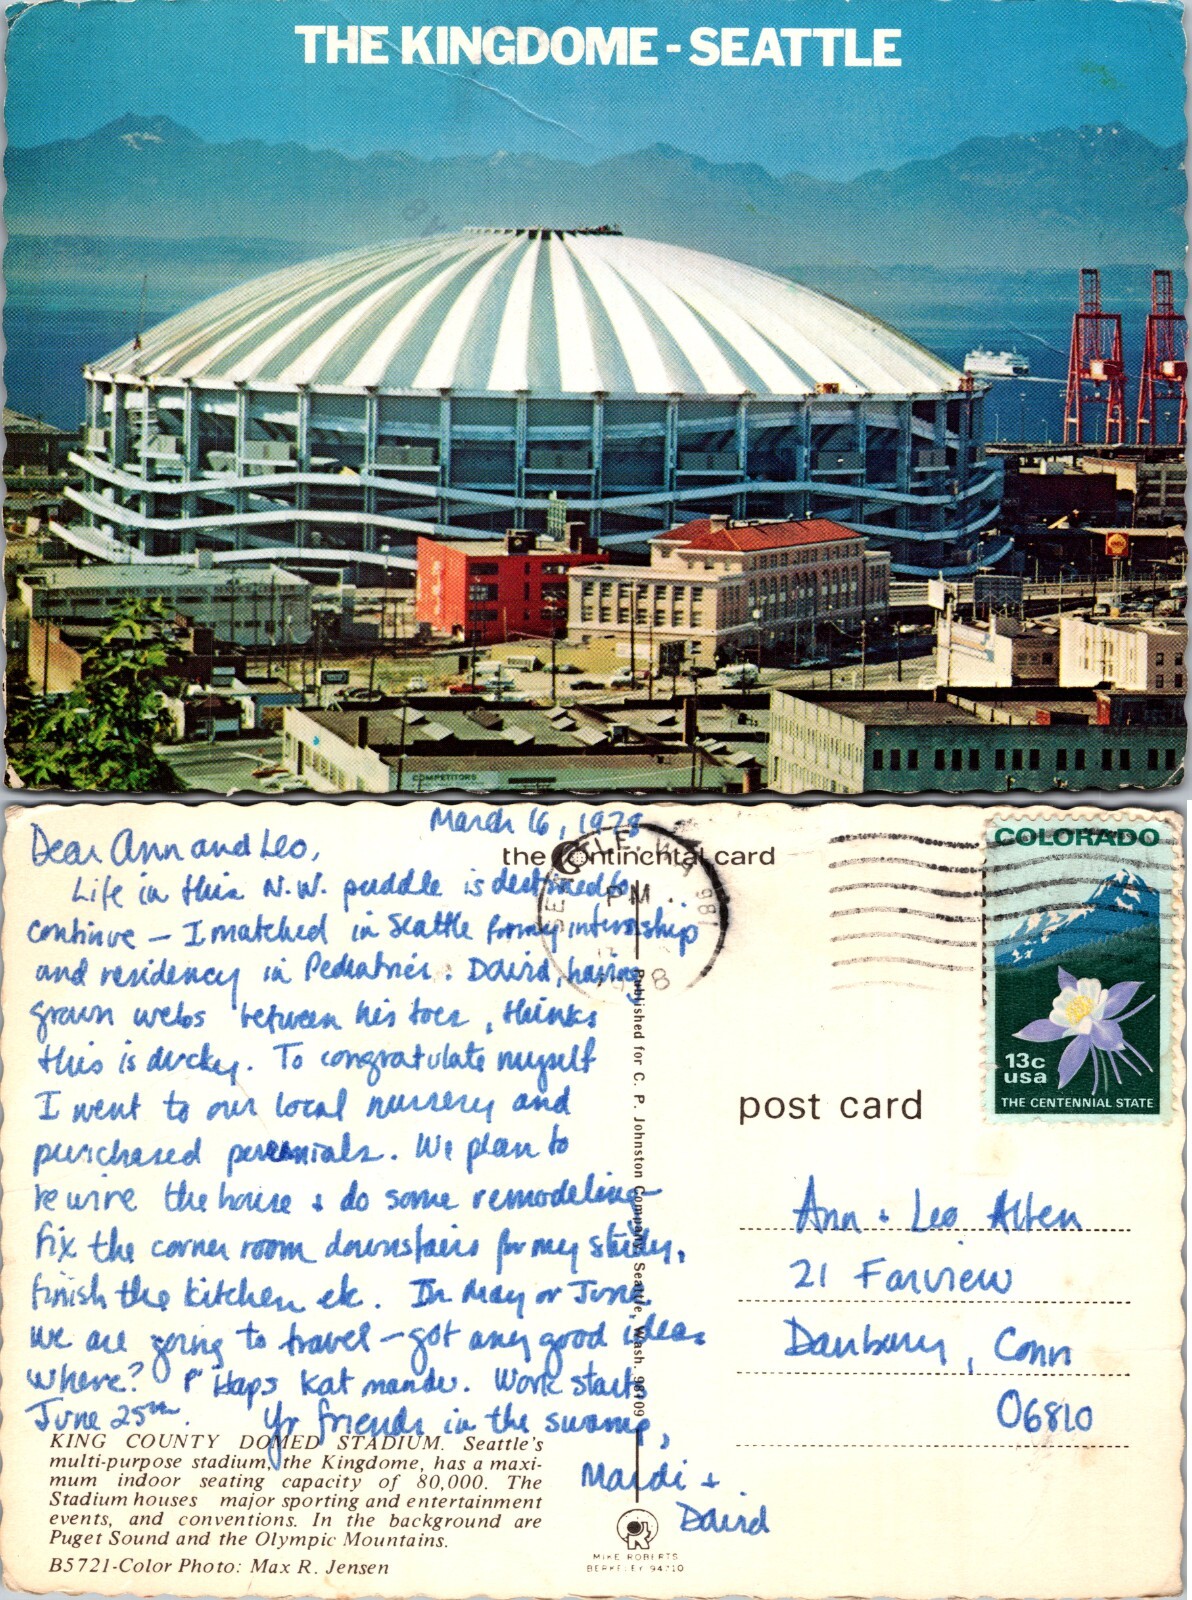 THE KINGDOME - SEATTLE
COMPETITORS
March 16, 1978
Dear Ann and Leo,
Life in this N.W. puddle is destined to
continue — I matched in Seattle for my internship
and residency in Pediatrics. David, having
grown webs between his toes, thinks
this is ducky. To congratulate myself
I went to our local nursery and
purchased perennials. We plan to
rewire the house & do some remodeling
fix the corner room downstairs for my study,
finish the kitchen etc. In May or June
we are going to travel — got any good ideas
where? P'Haps Katmandu. Work starts
June 25th. Yr friends in the swamp,
Mardi &
David
KING COUNTY DOMED STADIUM. Seattle's
multi-purpose stadium, the Kingdome, has a maxi-
mum indoor seating capacity of 80,000. The
Stadium houses major sporting and entertainment
events, and conventions. In the background are
Puget Sound and the Olympic Mountains.
B5721-Color Photo: Max R. Jensen
the Continental card
SEATTLE, WA 981
PM
1978
Published for C. P. Johnston Company, Seattle, Wash. 98109
MIKE ROBERTS
BERKELEY 94710
COLORADO
13c
usa
THE CENTENNIAL STATE
post card
Ann & Leo Alten
21 Fairview
Danbury, Conn
06810